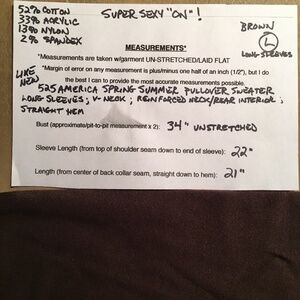 52% COTTON
33% ACRYLIC
13% NYLON
2% SPANDEX
SUPER SEXY "ON"!
BROWN
L
LONG-SLEEVES
MEASUREMENTS*
*Measurements are taken w/garment UN-STRETCHED/LAID FLAT
*Margin of error on any measurement is plus/minus one half of an inch (1/2"), but I do
the best I can to provide the most accurate measurements possible.
LIKE
NEW
525 AMERICA SPRING SUMMER PULLOVER SWEATER
LONG SLEEVES; V-NECK; REINFORCED NECK/REAR INTERIOR;
STRAIGHT HEM
Bust (approximate/pit-to-pit measurement x 2): 34" UNSTRETCHED
Sleeve Length (from top of shoulder seam down to end of sleeve): 22"
Length (from center of back collar seam, straight down to hem): 21"